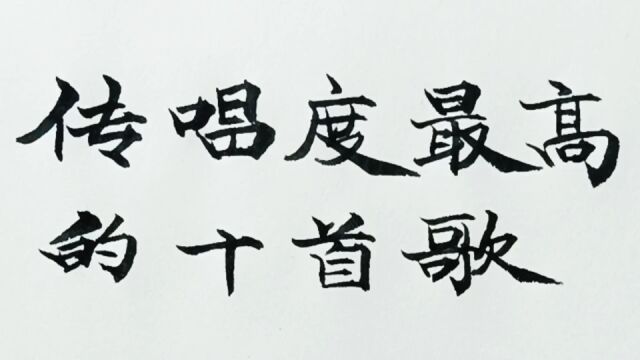 传唱度最高
的十首歌